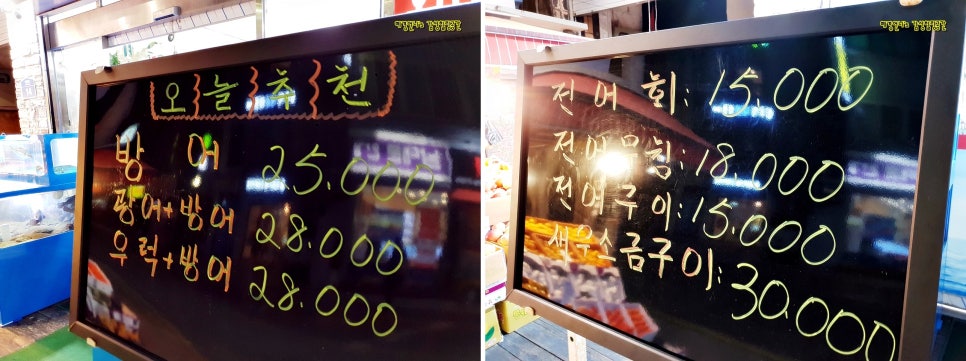 오늘추천
방어 25.000
광어+방어 28.000
우럭+방어 28.000
전어회: 15.000
전어무침: 18.000
전어구이: 15.000
새우소금구이: 30.000